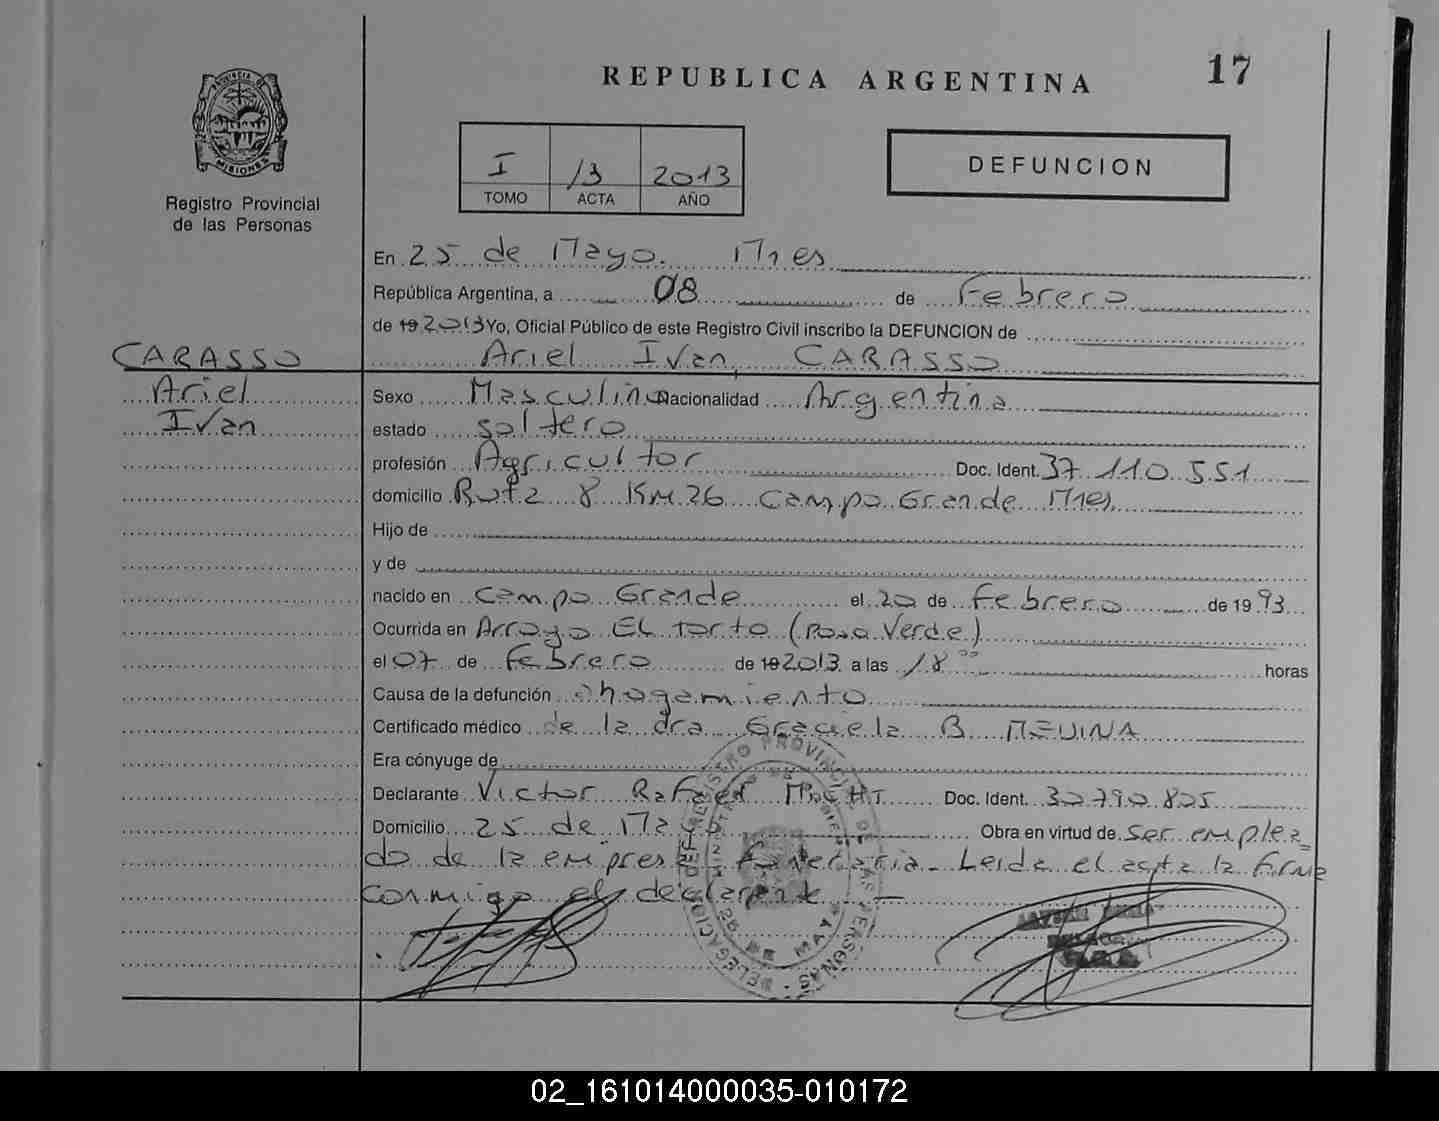 REPUBLICA ARGENTINA
17
PROVINCIA DE
MISIONES
Registro Provincial
de las Personas
I 13 2013
TOMO ACTA AÑO
DEFUNCION
En 25 de Mayo. Mnes
República Argentina, a 08 de Febrero
de 19 2013 Yo, Oficial Público de este Registro Civil inscribo la DEFUNCION de
Ariel Ivan CARASSO
CARASSO
Ariel
Ivan
Sexo Masculino Nacionalidad Argentina
estado soltero
profesión Agricultor Doc. Ident. 37.110.551
domicilio Ruta 8 KM 26 Campo Grande Mnes
Hijo de
y de
nacido en Campo Grande el 20 de Febrero de 1993
Ocurrida en Arroyo El torto (Poso Verde)
el 07 de Febrero de 19 2013 a las 18 horas
Causa de la defunción Ahogamiento
Certificado médico de la dra Graciela B
Era cónyuge de
Declarante Victor Rafael Doc. Ident. 30790805
Domicilio 25 de Mayo Obra en virtud de Ser emplea
do de la empresa Funeraria - Leida el acta la firma
conmigo el declarante -
REGISTRO PROVINCIAL DE LAS PERSONAS - DELEGACION
02_161014000035-010172